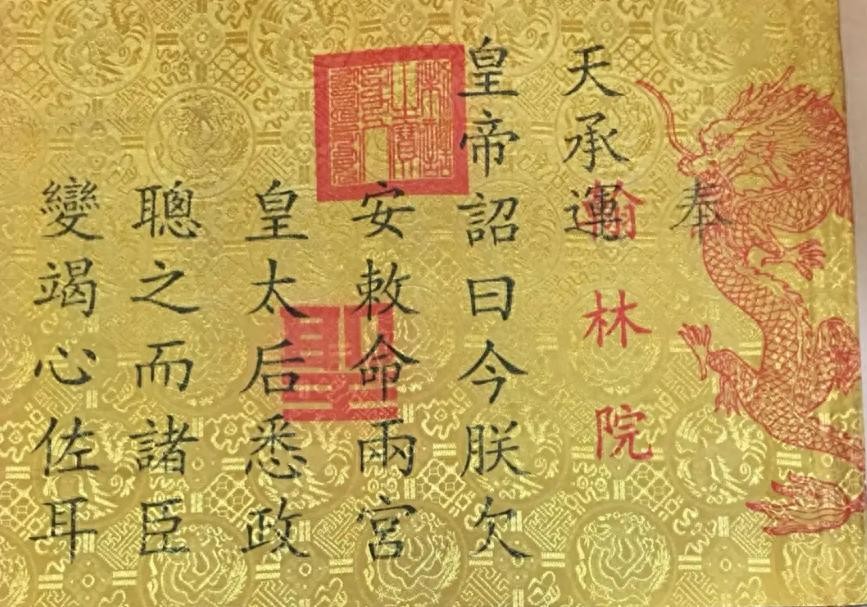 奉
天承運
翰林院
皇帝詔曰今朕欠
安敕命兩宮
皇太后悉政
聰之而諸臣
變竭心佐耳
聖